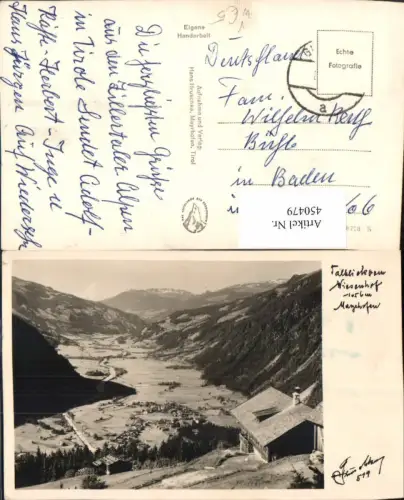 Die herzlichsten Grüße
aus den Zillertaler Alpen
in Tirol sendet Adolf-
Käthe-Herbert-Inge u
Hansjürgen Auf Wiedersehn
Eigene
Handarbeit
Aufnahme und Verlag:
Hans Hruschka, Mayrhofen, Tirol
Echte
Fotografie
Deutschland
Fam.
Wilhelm
Bühl
in Baden
Artikel Nr.
450479
Talblick vom
Wiesenhof
1058m
Mayrhofen
519